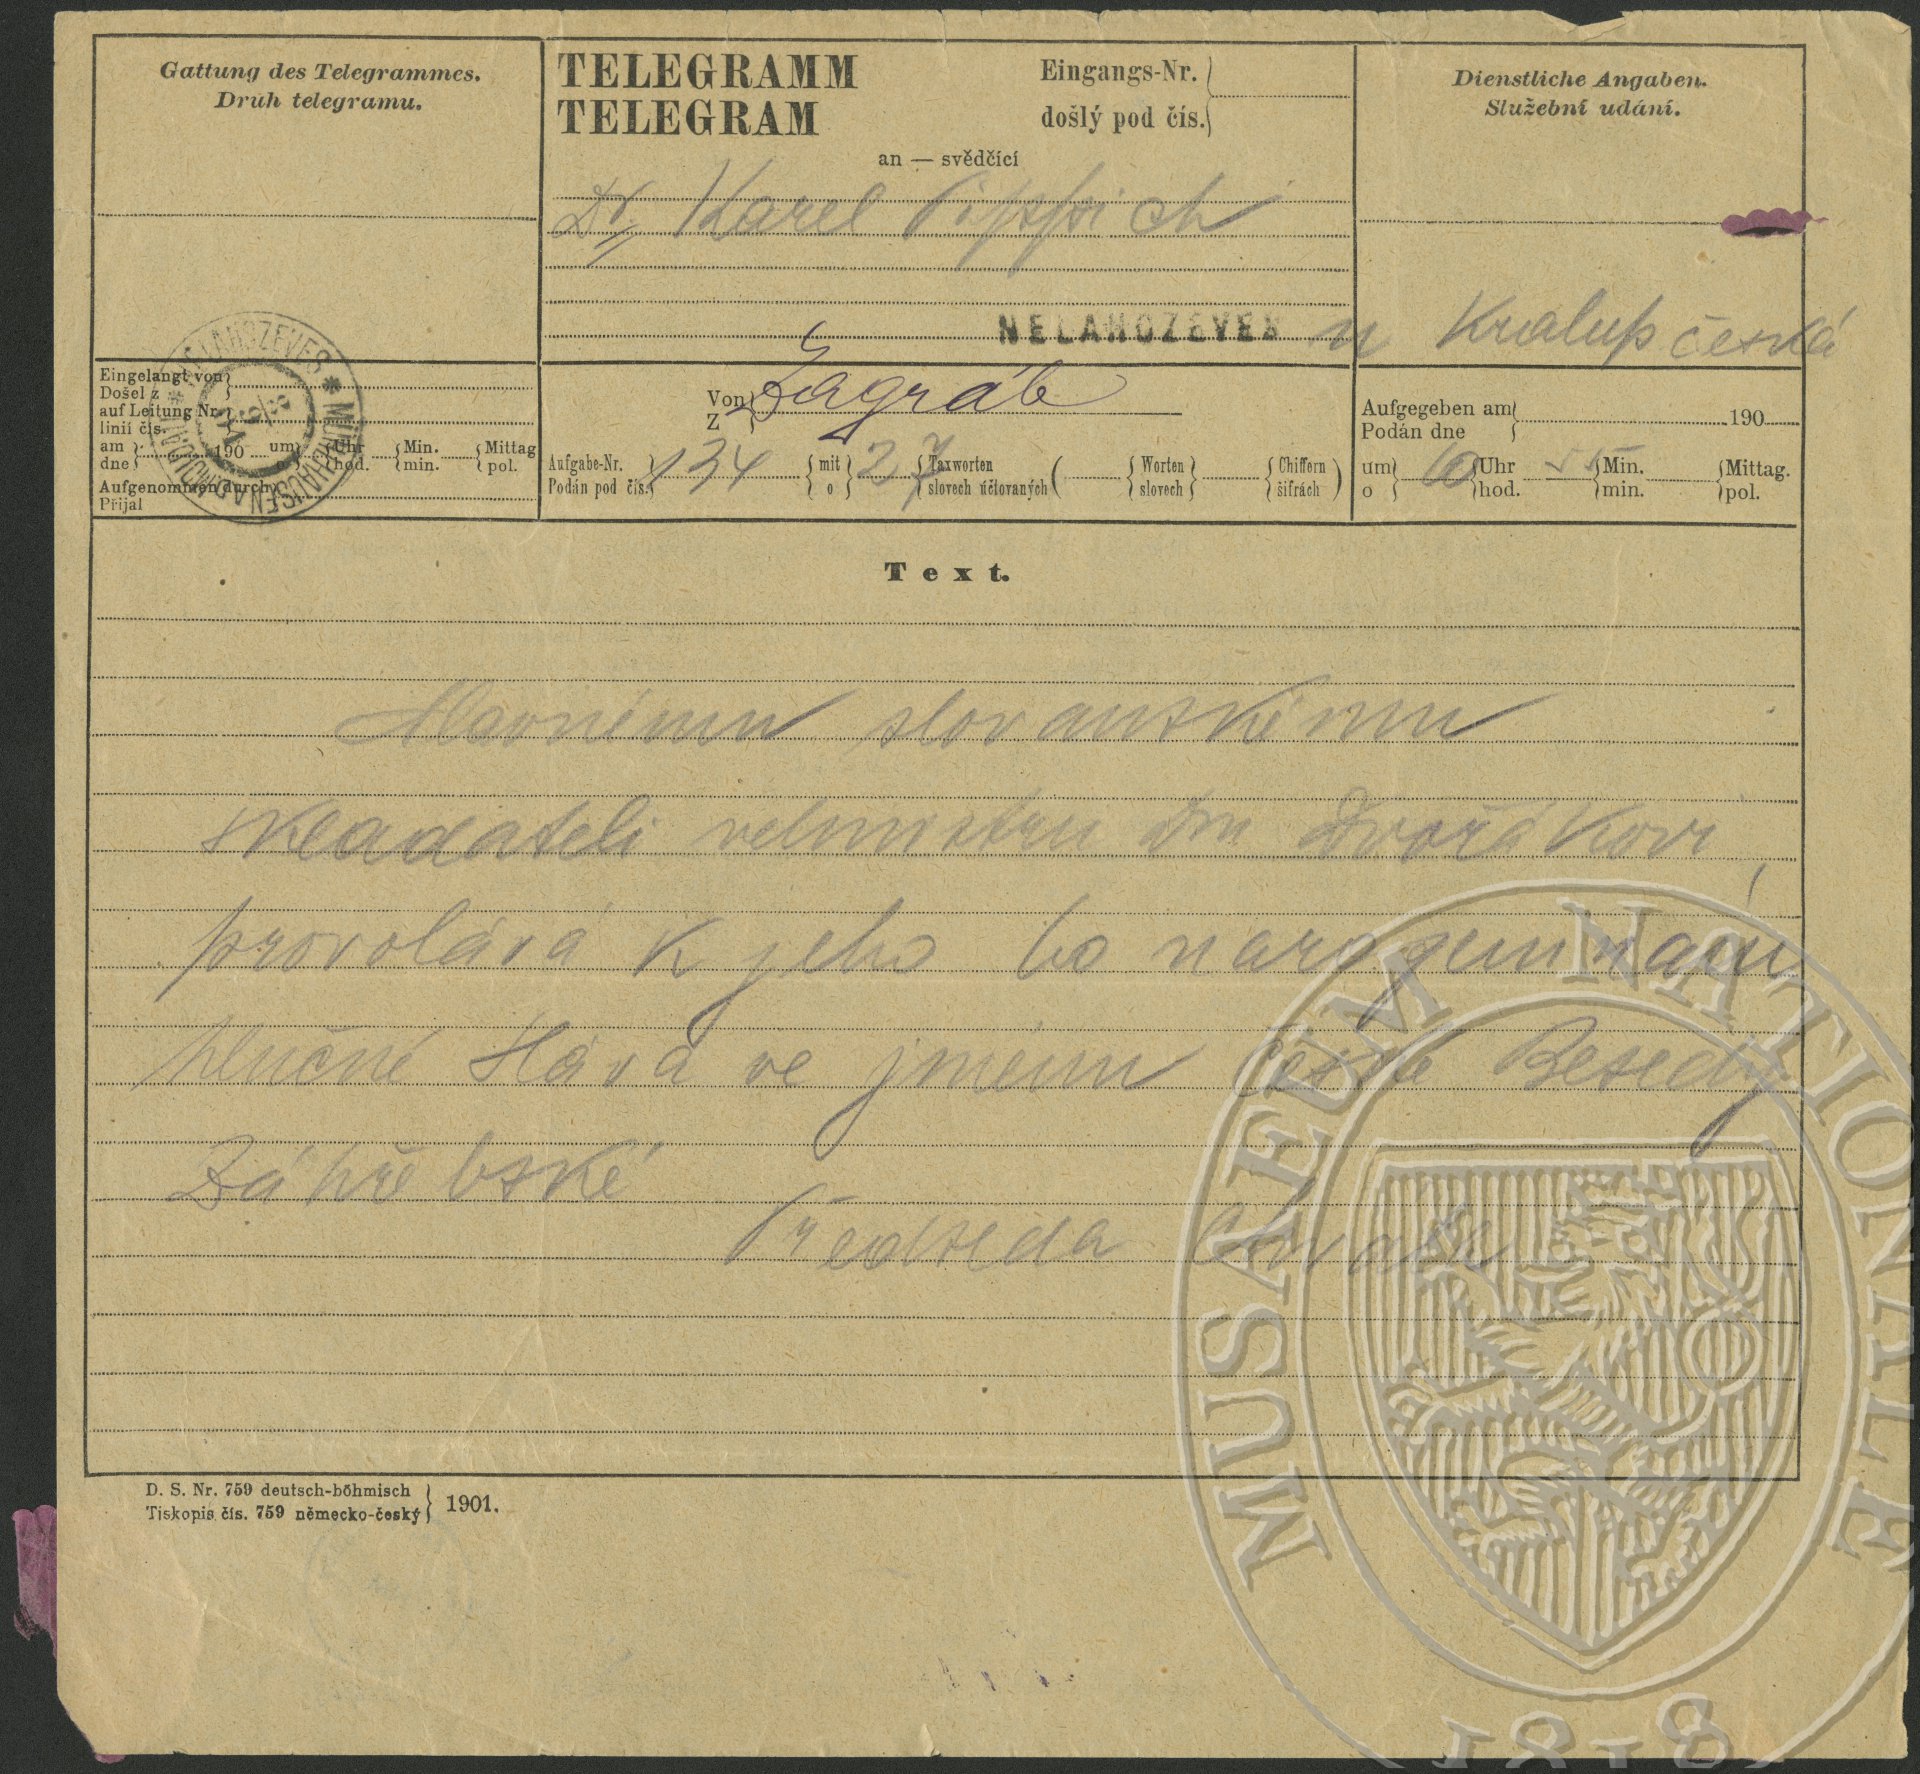 Gattung des Telegrammes.
Druh telegramu.
TELEGRAMM
TELEGRAM
Eingangs-Nr.
došlý pod čís.
an — svědčící
Dienstliche Angaben.
Služební udání.
Dr. Karel Pippich
NELAHOZEVES u Kralup česká
NELAHOZEVES * MÜHLHAUSEN A.D. MOLDAU *
Eingelangt von
Došel z
auf Leitung Nr.
linii čís.
am 190 um Uhr Min. Mittag
dne o hod. min. pol.
Aufgenommen durch
Přijal
Von Zagráb
Z
Aufgabe-Nr. 134 mit 27 Taxworten ( Worten Chiffern )
Podán pod čís. o slovech účtovaných slovech šifrách
Aufgegeben am 190
Podán dne
um 10 Uhr 55 Min. Mittag.
o hod. min. pol.
Text.
slovanskému
skladateli velmistru Dvořákovi
provolává k jeho 60 narozeninám
hlučné Sláva ve jménu české Besedy
Záhřebské
Předseda
D. S. Nr. 759 deutsch-böhmisch
Tiskopis čís. 759 německo-český 1901.
MUSAEUM NATIONALE
1818